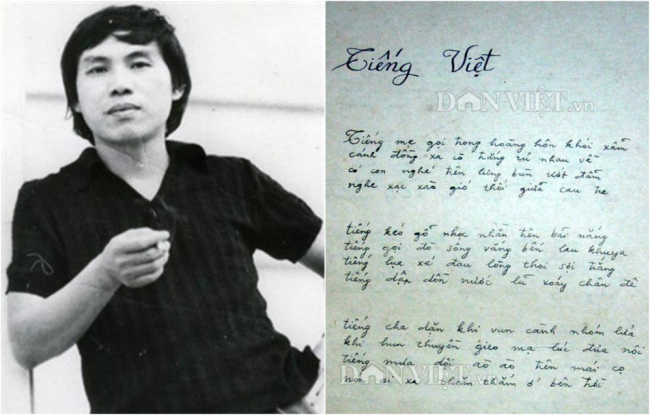 Tiếng Việt
DANVIỆT.vn
Tiếng mẹ gọi trong hoàng hôn khói sẫm
cánh đồng xa cò trắng rủ nhau về
có con nghé trên lưng bùn ướt đẫm
nghe xạc xào gió thổi giữa cau tre
tiếng kéo gỗ nhọc nhằn trên bãi nắng
tiếng gọi đò sông vắng bến lau khuya
tiếng lụa xé đau lòng thoi sợi trắng
tiếng dập dồn nước lũ xoáy chân đê
DANVIỆT.vn
tiếng cha dặn khi vun cành nhóm lửa
khi hun thuyền gieo mạ lúc đưa nôi
tiếng mưa dội ào ào trên mái cọ
xa thăm thẳm ở bên trời
DANVIỆT.vn